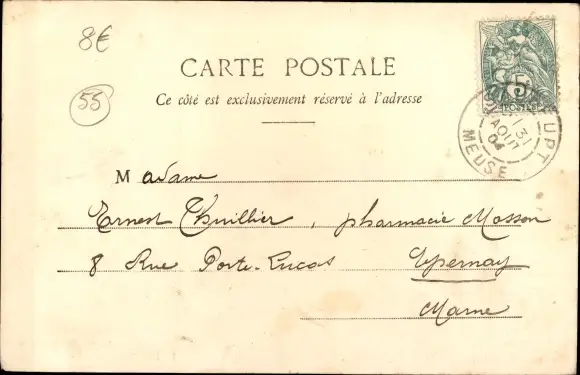 8€
55
CARTE POSTALE
Ce côté est exclusivement réservé à l'adresse
5
POSTES
31
AOUT
04
MEUSE
Madame
Ernest Thuillier, pharmacie Masson
8 Rue Porte-Lucas Epernay
Marne